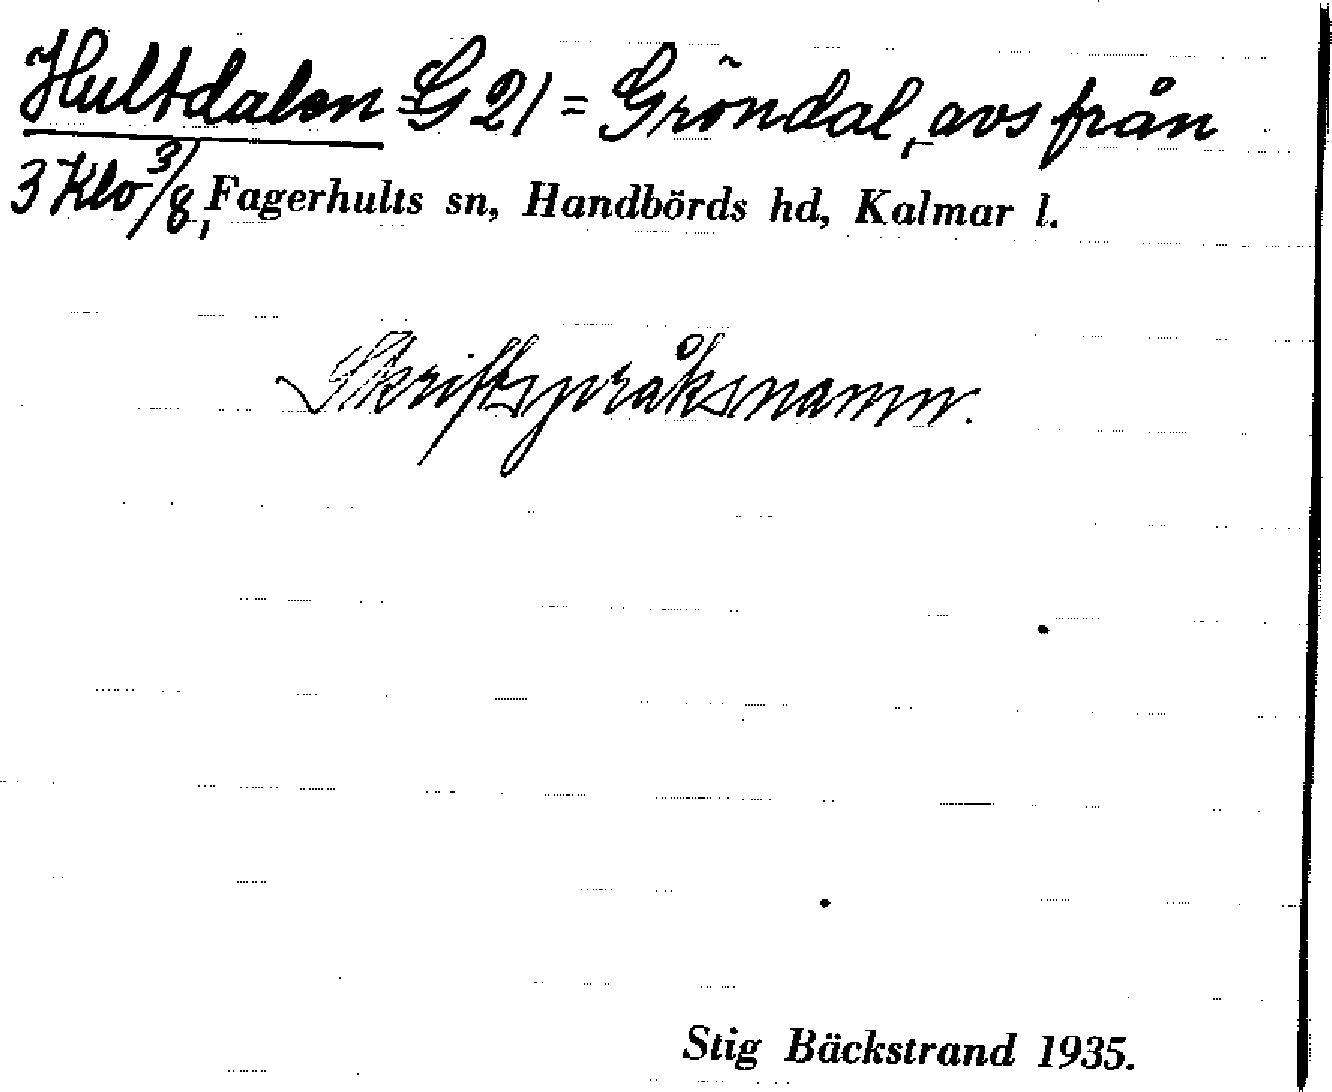 Hultdalen G 21 = Gröndal, avs från
3 Klo 3/8, Fagerhults sn, Handbörds hd, Kalmar l.
Skriftspråksnamn.
Stig Bäckstrand 1935.